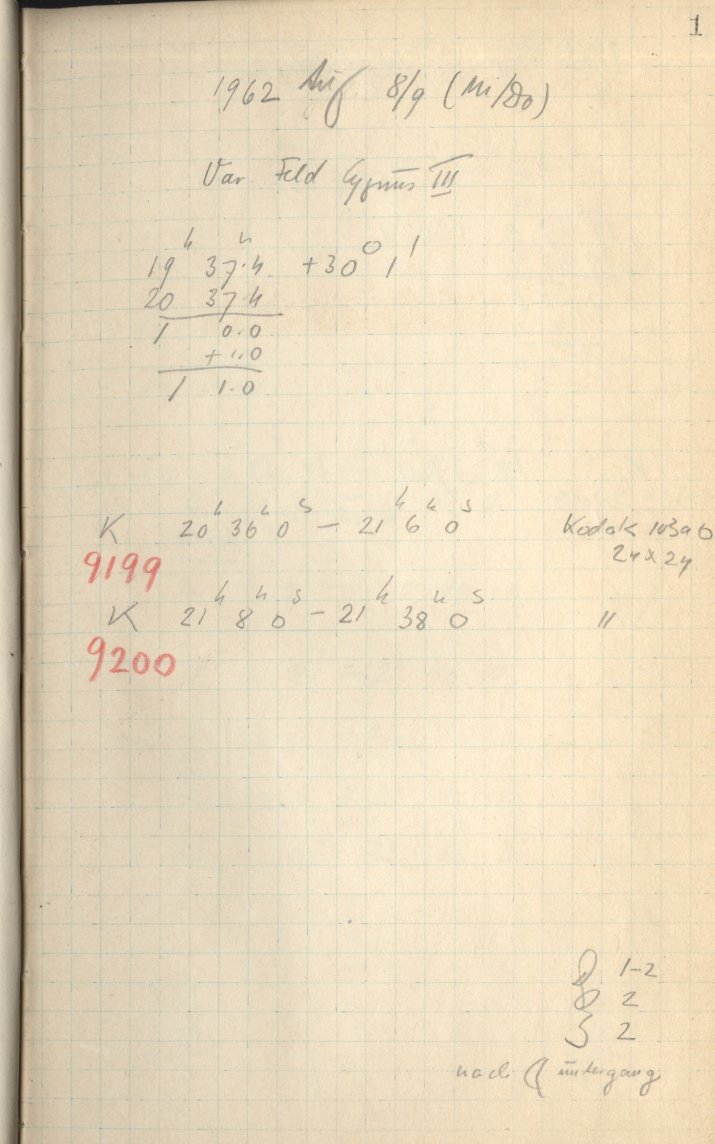 1
1962 Aug 8/9 (Mi/Do)
Var. Feld Cygnus III
19h 37m.4 +30° 1'
20 37.4
1 0.0
+1.0
1 1.0
K 20h 36m 0s – 21h 6m 0s Kodak 103a0
9199 24x24
K 21h 8m 0s – 21h 38m 0s "
9200
1-2
2
2
nach ☾ untergang